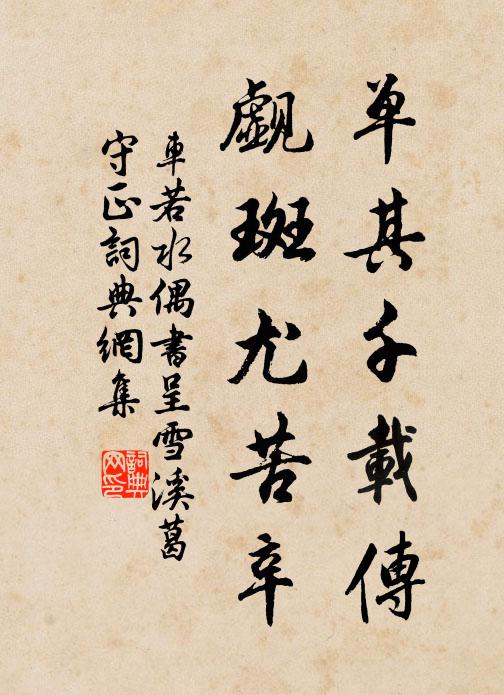 单其千載傳
觑斑尤苦辛
車若水偶書呈雪溪葛
守正詞典網集
詞典
网印